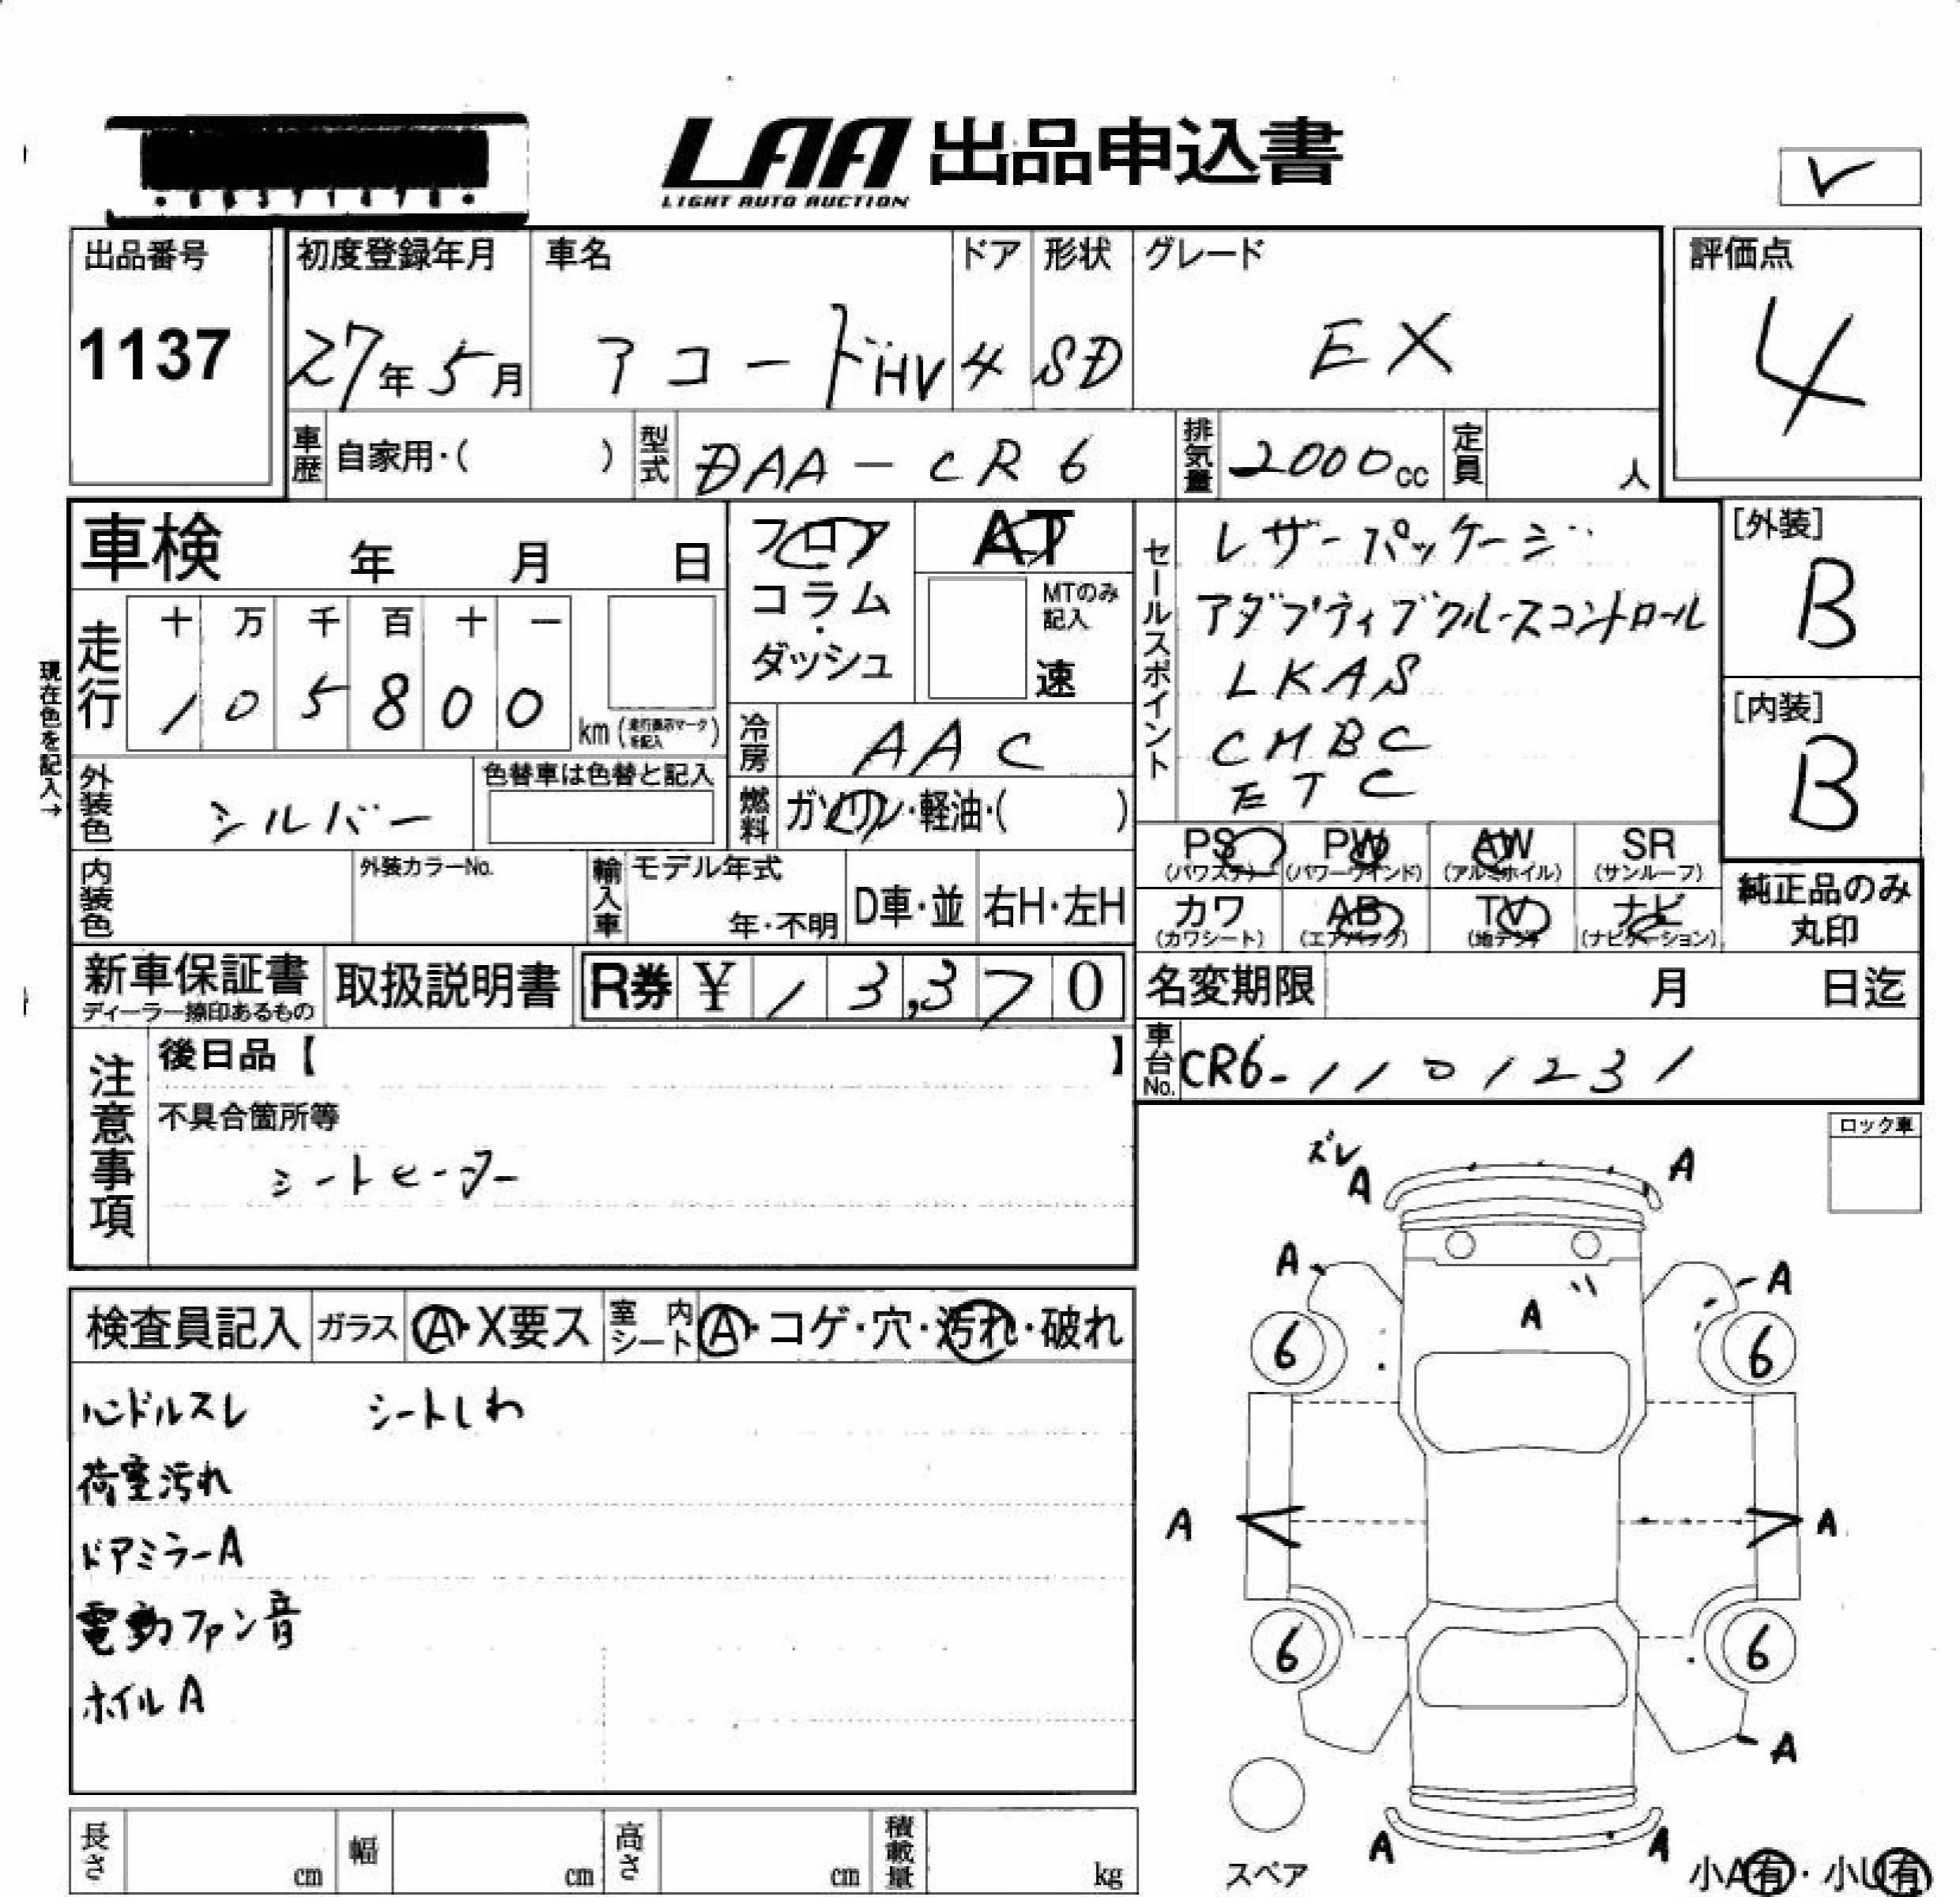 LAA 出品申込書
LIGHT AUTO AUCTION
出品番号
1137
初度登録年月
27年5月
車名
アコードHV
ドア
4
形状
SD
グレード
EX
評価点
4
車歴 自家用・( )
型式 DAA-CR6
排気量 2000cc
定員 人
車検 年 月 日
走行
十 万 千 百 十 一
1 0 5 8 0 0
km (走行表示マークを記入)
現在色を記入→
外装色 シルバー
色替車は色替と記入
内装色
外装カラーNo.
フロア
コラム
・
ダッシュ
AT
MTのみ記入
速
冷房 AAC
燃料 ガソリン・軽油・( )
輸入車
モデル年式
年・不明
D車・並
右H・左H
セールスポイント
レザーパッケージ
アダプティブクルーズコントロール
LKAS
CMBC
ETC
[外装]
B
[内装]
B
PS (パワステ)
PW (パワーウインド)
AW (アルミホイル)
SR (サンルーフ)
カワ (カワシート)
AB (エアバック)
TV (地デジ)
ナビ (ナビゲーション)
純正品のみ
丸印
新車保証書
ディーラー捺印あるもの
取扱説明書
R券 ¥13,370
名変期限 月 日迄
車台No. CR6-1101231
注意事項
後日品【 】
不具合箇所等
シートヒーター
ロック車
検査員記入
ガラス A・X要ス
室内シート A・コゲ・穴・汚れ・破れ
ハンドルスレ シートしわ
荷室汚れ
ドアミラーA
電動ファン音
ホイルA
ズレ
A A
A A
A
6 6
A A
6 6
A
A A
スペア
小A有・小U有
長さ cm
幅 cm
高さ cm
積載量 kg